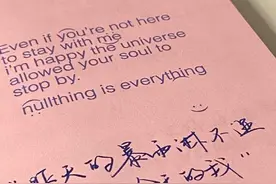 Even if you're not here
to stay with me
i'm happy the universe
allowed your soul to
stop by.
nullthing is everything
“昨天的暴雨淋不湿
今天的我”